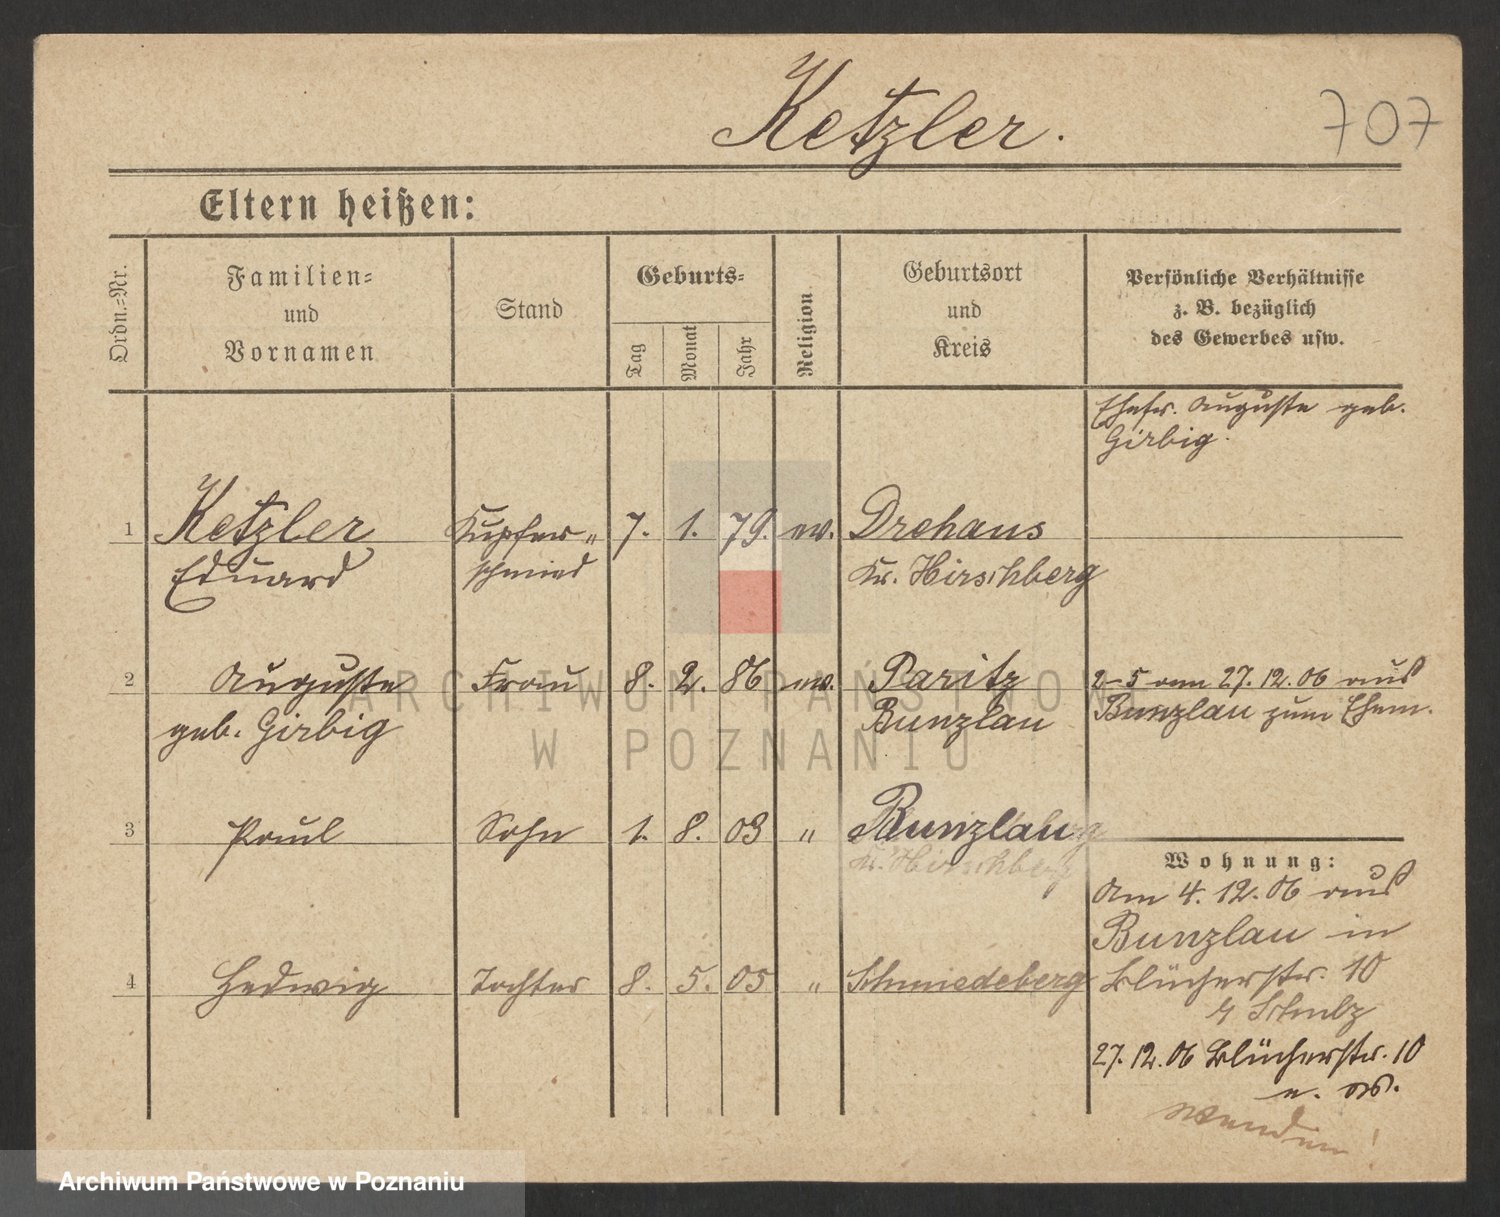 Ketzler.
707
Eltern heißen:
Ordn.=Nr.
Familien=
und
Vornamen
Stand
Geburts=
Tag
Monat
Jahr
Religion
Geburtsort
und
Kreis
Persönliche Verhältnisse
z. B. bezüglich
des Gewerbes usw.
Ehefr. Auguste geb.
Girbig.
1
Ketzler
Eduard
Kupfer"
schmied
7. 1. 79. ev.
Drehaus
Kr. Hirschberg
2
Auguste
geb. Girbig
Frau
8. 2. 86 ev.
Paritz
Bunzlau
2-5 am 27.12.06 aus
Bunzlau zum Ehem.
3
Paul
Sohn
1. 8. 03 "
Bunzlau
Kr. Hirschberg
Wohnung:
Am 4.12.06 aus
Bunzlau in
Blücherstr. 10
4
Hedwig
Tochter
8. 5. 05 "
Schmiedeberg
b Schulz
27.12.06 Blücherstr. 10
wenden!
ARCHIWUM PAŃSTWOWE
W POZNANIU
Archiwum Państwowe w Poznaniu